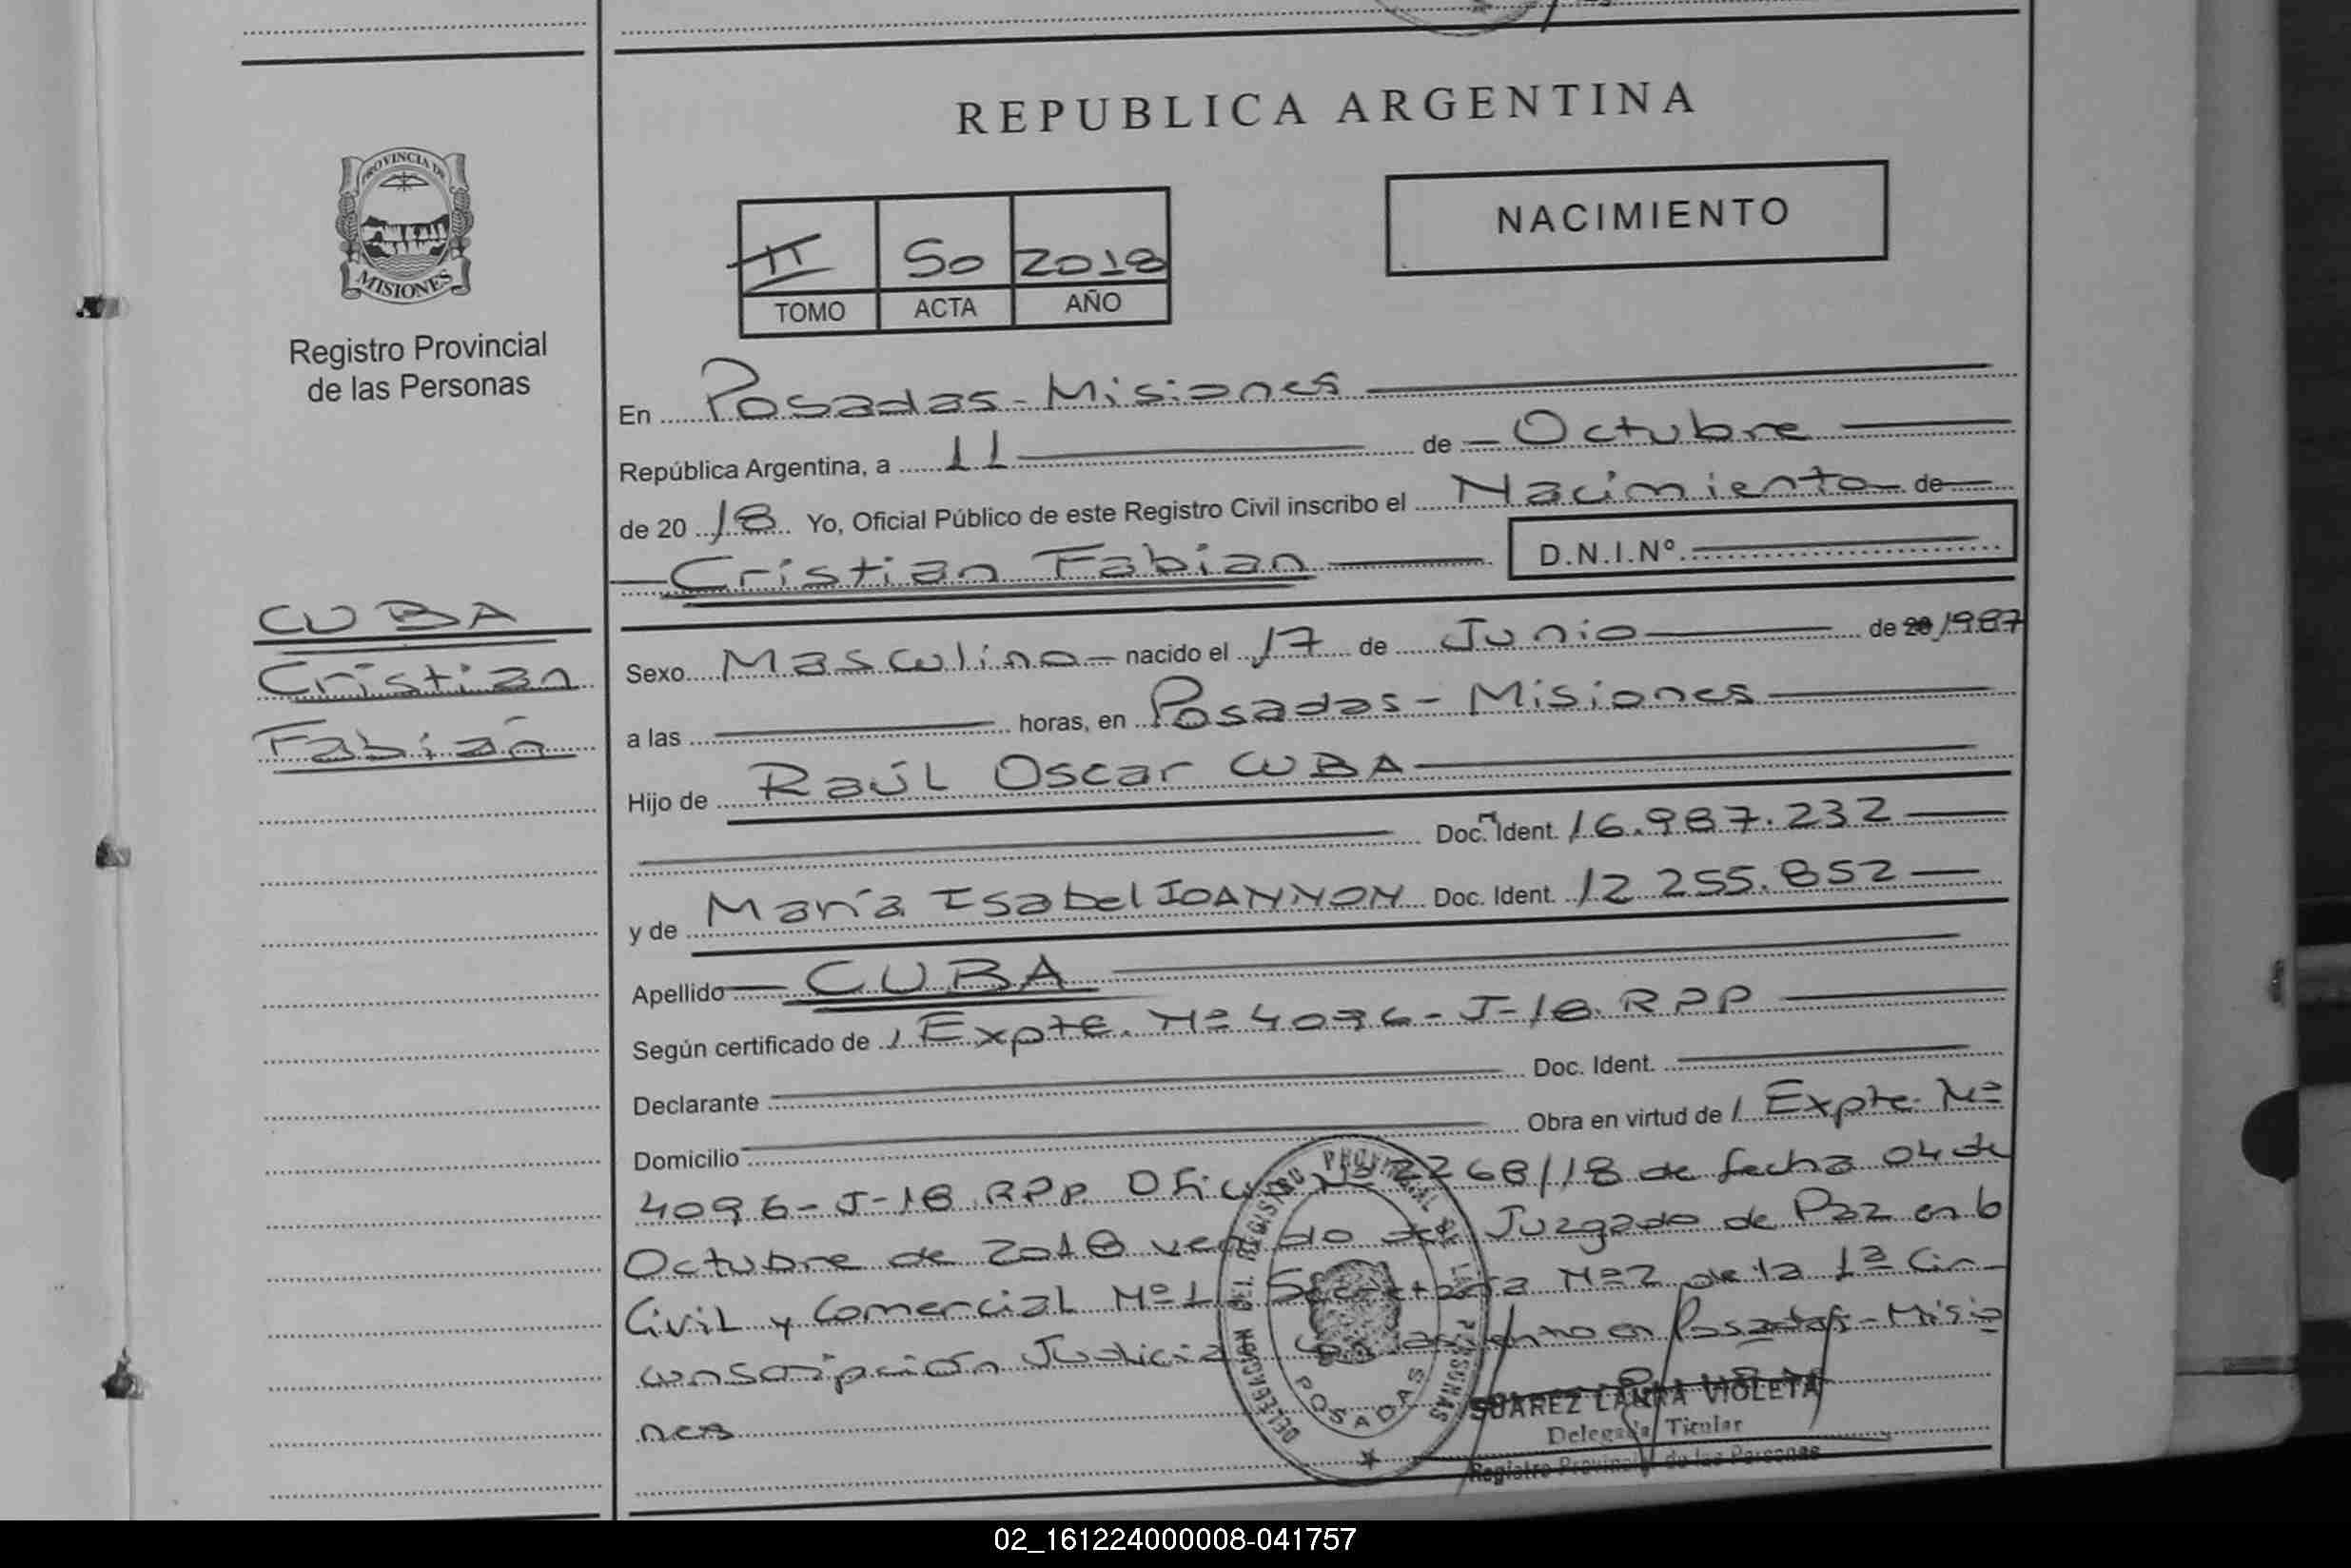 REPUBLICA ARGENTINA
PROVINCIA DE
MISIONES
Registro Provincial
de las Personas
II 50 2018
TOMO ACTA AÑO
NACIMIENTO
En Posadas - Misiones
República Argentina, a 11 de Octubre
de 20 18 Yo, Oficial Público de este Registro Civil inscribo el Nacimiento de
Cristian Fabian D.N.I.Nº
CUBA
Cristian
Fabián
Sexo Masculino nacido el 17 de Junio de 20 1987
a las horas, en Posadas - Misiones
Hijo de Raúl Oscar CUBA
Doc. Ident. 16.987.232
y de María Isabel IOANNON Doc. Ident. 12 255.852
Apellido CUBA
Según certificado de Expte. Nº 4096-J-18 RPP
Declarante Doc. Ident.
Domicilio Obra en virtud de Expte Nº
4096-J-18 RPP Oficio Nº 2268/18 de fecha 04 de
Octubre de 2018 del Juzgado de Paz en lo
Civil y Comercial Nº1 Secretaría Nº2 de la 1ª Cir-
cunscripción Judicial con asiento en Posadas - Misio
nes
DELEGACION DEL REGISTRO PROVINCIAL DE LAS PERSONAS
POSADAS
SUAREZ LAURA VIOLETA
Delegada Titular
Registro Provincial de las Personas
02_161224000008-041757